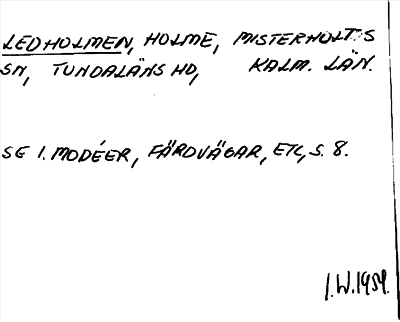 LEDHOLMEN, HOLME, MISTERHULTS
SN, TUNDALÄNS HD, KALM. LÄN.
SE I. MODÉER, FÄRDVÄGAR, ETC, S. 8.
I.W.1954.